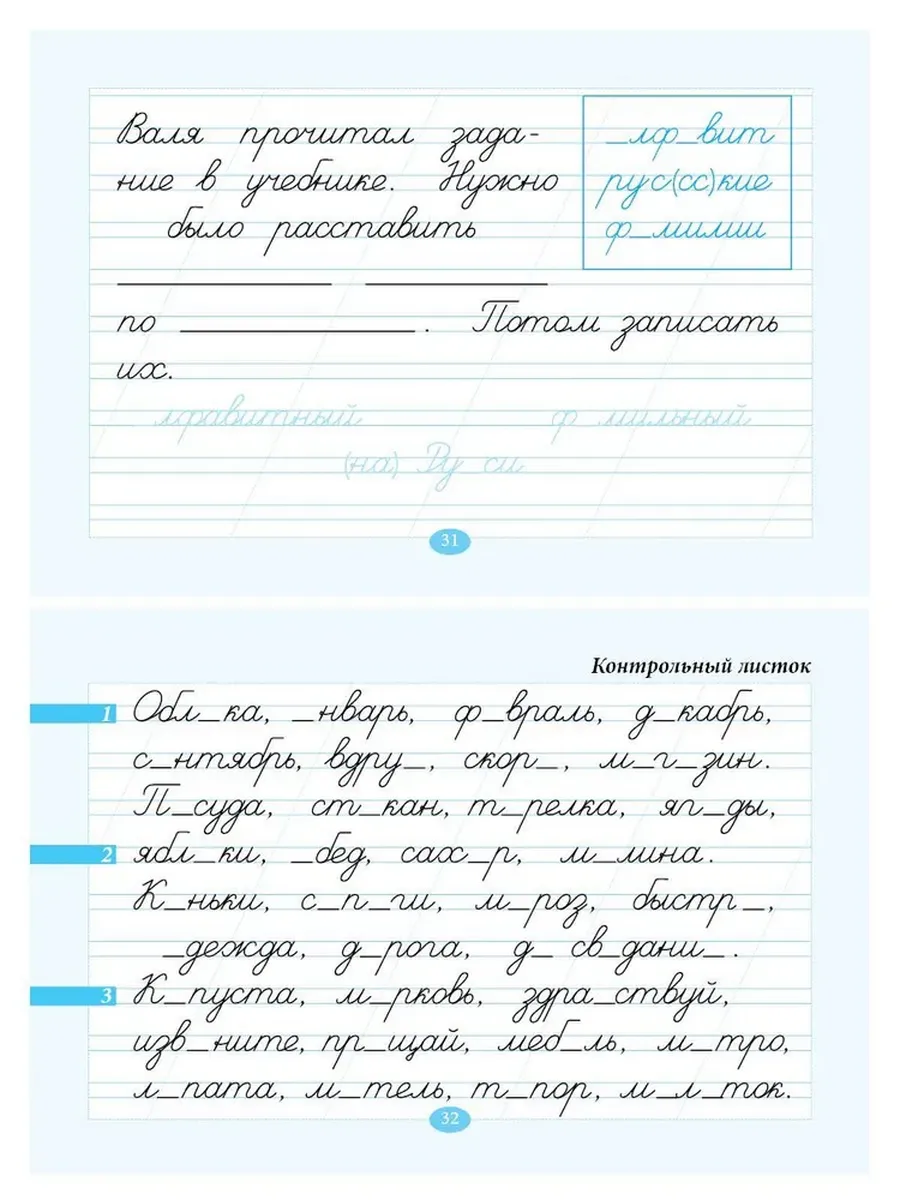 Валя прочитал зада-
ние в учебнике. Нужно
было расставить
_лф_вит
рус(сс)кие
ф_милии
____ ____
по ____. Потом записать
их.
_лфавитный ф_мильный
(на) Ру_си
31
Контрольный листок
1 Обл_ка, _нварь, ф_враль, д_кабрь,
с_нтябрь, вдру_, скор_, м_г_зин.
П_суда, ст_кан, т_релка, яг_ды,
2 ябл_ки, _бед, сах_р, м_лина.
К_ньки, с_п_ги, м_роз, быстр_,
_дежда, д_рога, д_ св_дани_.
3 К_пуста, м_рковь, здра_ствуй,
изв_ните, пр_щай, меб_ль, м_тро,
л_пата, м_тель, т_пор, м_л_ток.
32